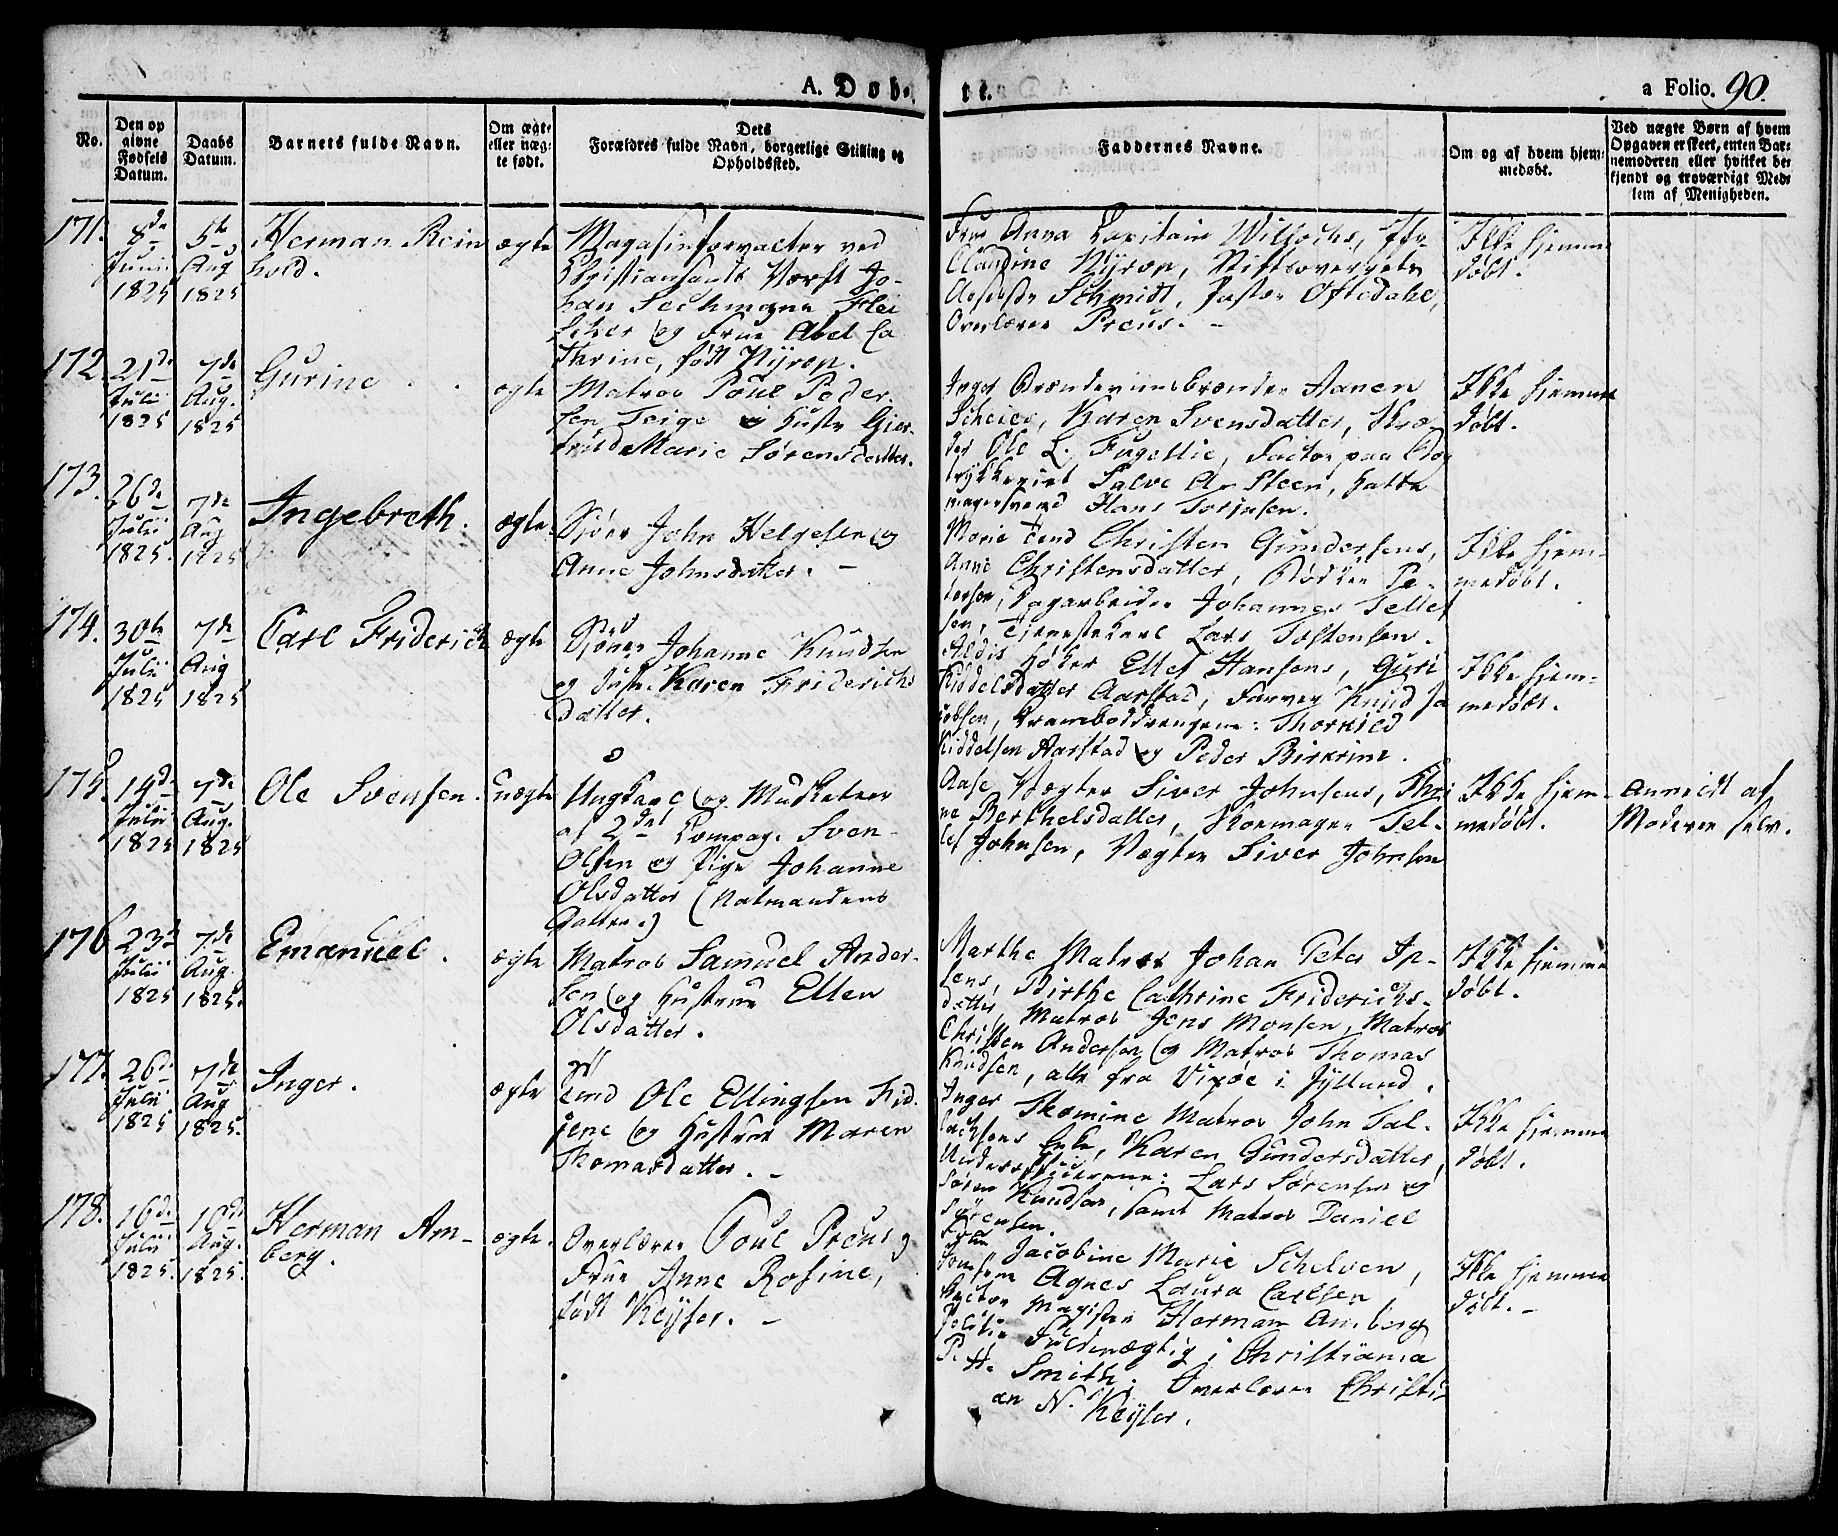 A. Døb-
te.
a Folio. 90.
No.
Den op
givne
Fødsels
Datum.
Daabs
Datum.
Barnets fulde Navn.
Om ægte
eller uæg-
te født.
Dets
Forældres fulde Navn, borgerlige Stilling og
Opholdssted.
Faddernes Navne.
Om og af hvem hjem-
medøbt.
Ved uægte Børn af hvem
Opgaven er skeet, enten Bar-
nemoderen eller hvilket be-
kjendt og troværdigt Med-
lem af Menigheden.
171.
8de
Junii
1825
5te
Aug
1825
Herman Rein
hold.
ægte
Magasinforvalter ved
Christiansands Værft Jo-
han Sechmann Flei
scher og Frue Abel Ca
thrine, født Nÿrop.
Frue Anna Capitain Willochs, Jfr
Claudine Nÿrop, Stiftsoverrets
Assessor Schmidt, Pastor Oftedahl,
Overlærer Preus. -
Ikke hjemme
døbt.
172.
21de
Julii
1825
7de
Aug.
1825
Gurine
ægte
Matros Poul Peder
sen Teige og Hustr Gier
trud Marie Sørensdatter.
Inger Brændeviinsbrænder Aanen
Scheies, Karen Svensdatter, Skræ
der Ole L. Fugellie, Factor paa Bog
trykkeriet Salve A. Steen, Hatte
magersvend Hans Torjusen.
Ikke hjemme
døbt.
173.
26de
Julii
1825.
7de
Aug
1825
Ingebreth.
ægte.
John Helgesen og
Anne Johnsdatter. -
Marie Christen Gundersens,
Anne Christensdatter, Bødker Pe-
dersen, Dagarbeider Johannes Tellef
sen, Tjenestekarl Lars Tostensen.
Ikke hjem-
medøbt.
174.
30te
Julii
1825
7de
Aug
1825
Carl Friderich
ægte
Johanne Knudsen
og Hustr. Karen Friderichs
datter.
Høker Ellef Hansens, Guri
Kiddelsdatter Aarstad, Farver Knud Ja
cobsen, Thorkild
Kiddelsen Aarstad og Peder Birkrim.
Ikke hjem-
medøbt.
175.
14de
Julii
1825
7de
Aug.
1825
Ole Svensen.
Uægte
Ungkarl og Musketeer
af 2det Compag. Sven
Olsen og Pige Johanne
Olsdatter (Natmandens
Datter.)
Aase Vægter Siver Johnsens, Thri
ne Berthelsdatter, Skomager Tel-
lef Johnsen, Vægter Siver Johnsen
Ikke hjem-
medøbt.
Anmeldt af
Moderen selv.
176
23de
Julii
1825
7de
Aug.
1825.
Emanuel.
ægte
Matros Samuel Ander-
sen og Hustrue Ellen
Olsdatter.
Marthe Matros Johan Peter Ip-
sens, Birthe Cathrine Friderichs-
datter, Matros Jens Monsen, Matros
Christen Andersen og Matros Thomas
Knudsen, alle fra i Jÿlland.
Ikke hjemme
døbt.
177.
26de
Julii
1825
7de
Aug
1825.
Inger.
ægte
Ole Ellingsen Fid-
jene og Hustrue Maren
Thomasdatter. -
Inger Thomine Matros John Tal-
lachsens Enke, Karen Gundersdatter,
Lars Sørensen og
Søren Knudsen, samt Matros Daniel
Sÿvensen.
Ikke hjemme
døbt.
178.
16de
Julii
1825.
10de
Aug.
1825.
Herman Am-
berg.
ægte.
Overlærer Poul Preus og
Frue Anne Rosine,
født Keÿser. -
Frue Jacobine Marie Schelven,
Jomfrue Agnes Laura Carlsen,
Rector Magister Herman Amberg
Politie Fuldmægtig i Christiania
P. H. Smith. Overlærer Christi
an N. Keÿser.
Ikke hjemme
døbt. -